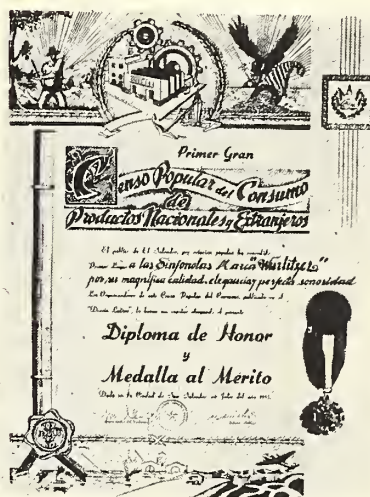 Primer Gran
Censo Popular del Consumo
de
Productos Nacionales y Extranjeros
El público de El Salvador, por votación popular ha concedido
Primer Lugar a las Sinfonolas Marca "Wurlitzer"
por su magnífica calidad, elegancia y perfecta sonoridad
Los Organizadores de este Censo Popular del Consumo, publicado en el
"Diario Latino", le hacen
el presente
Diploma de Honor
y
Medalla al Mérito
Dado en la Ciudad de San Salvador en Julio del año